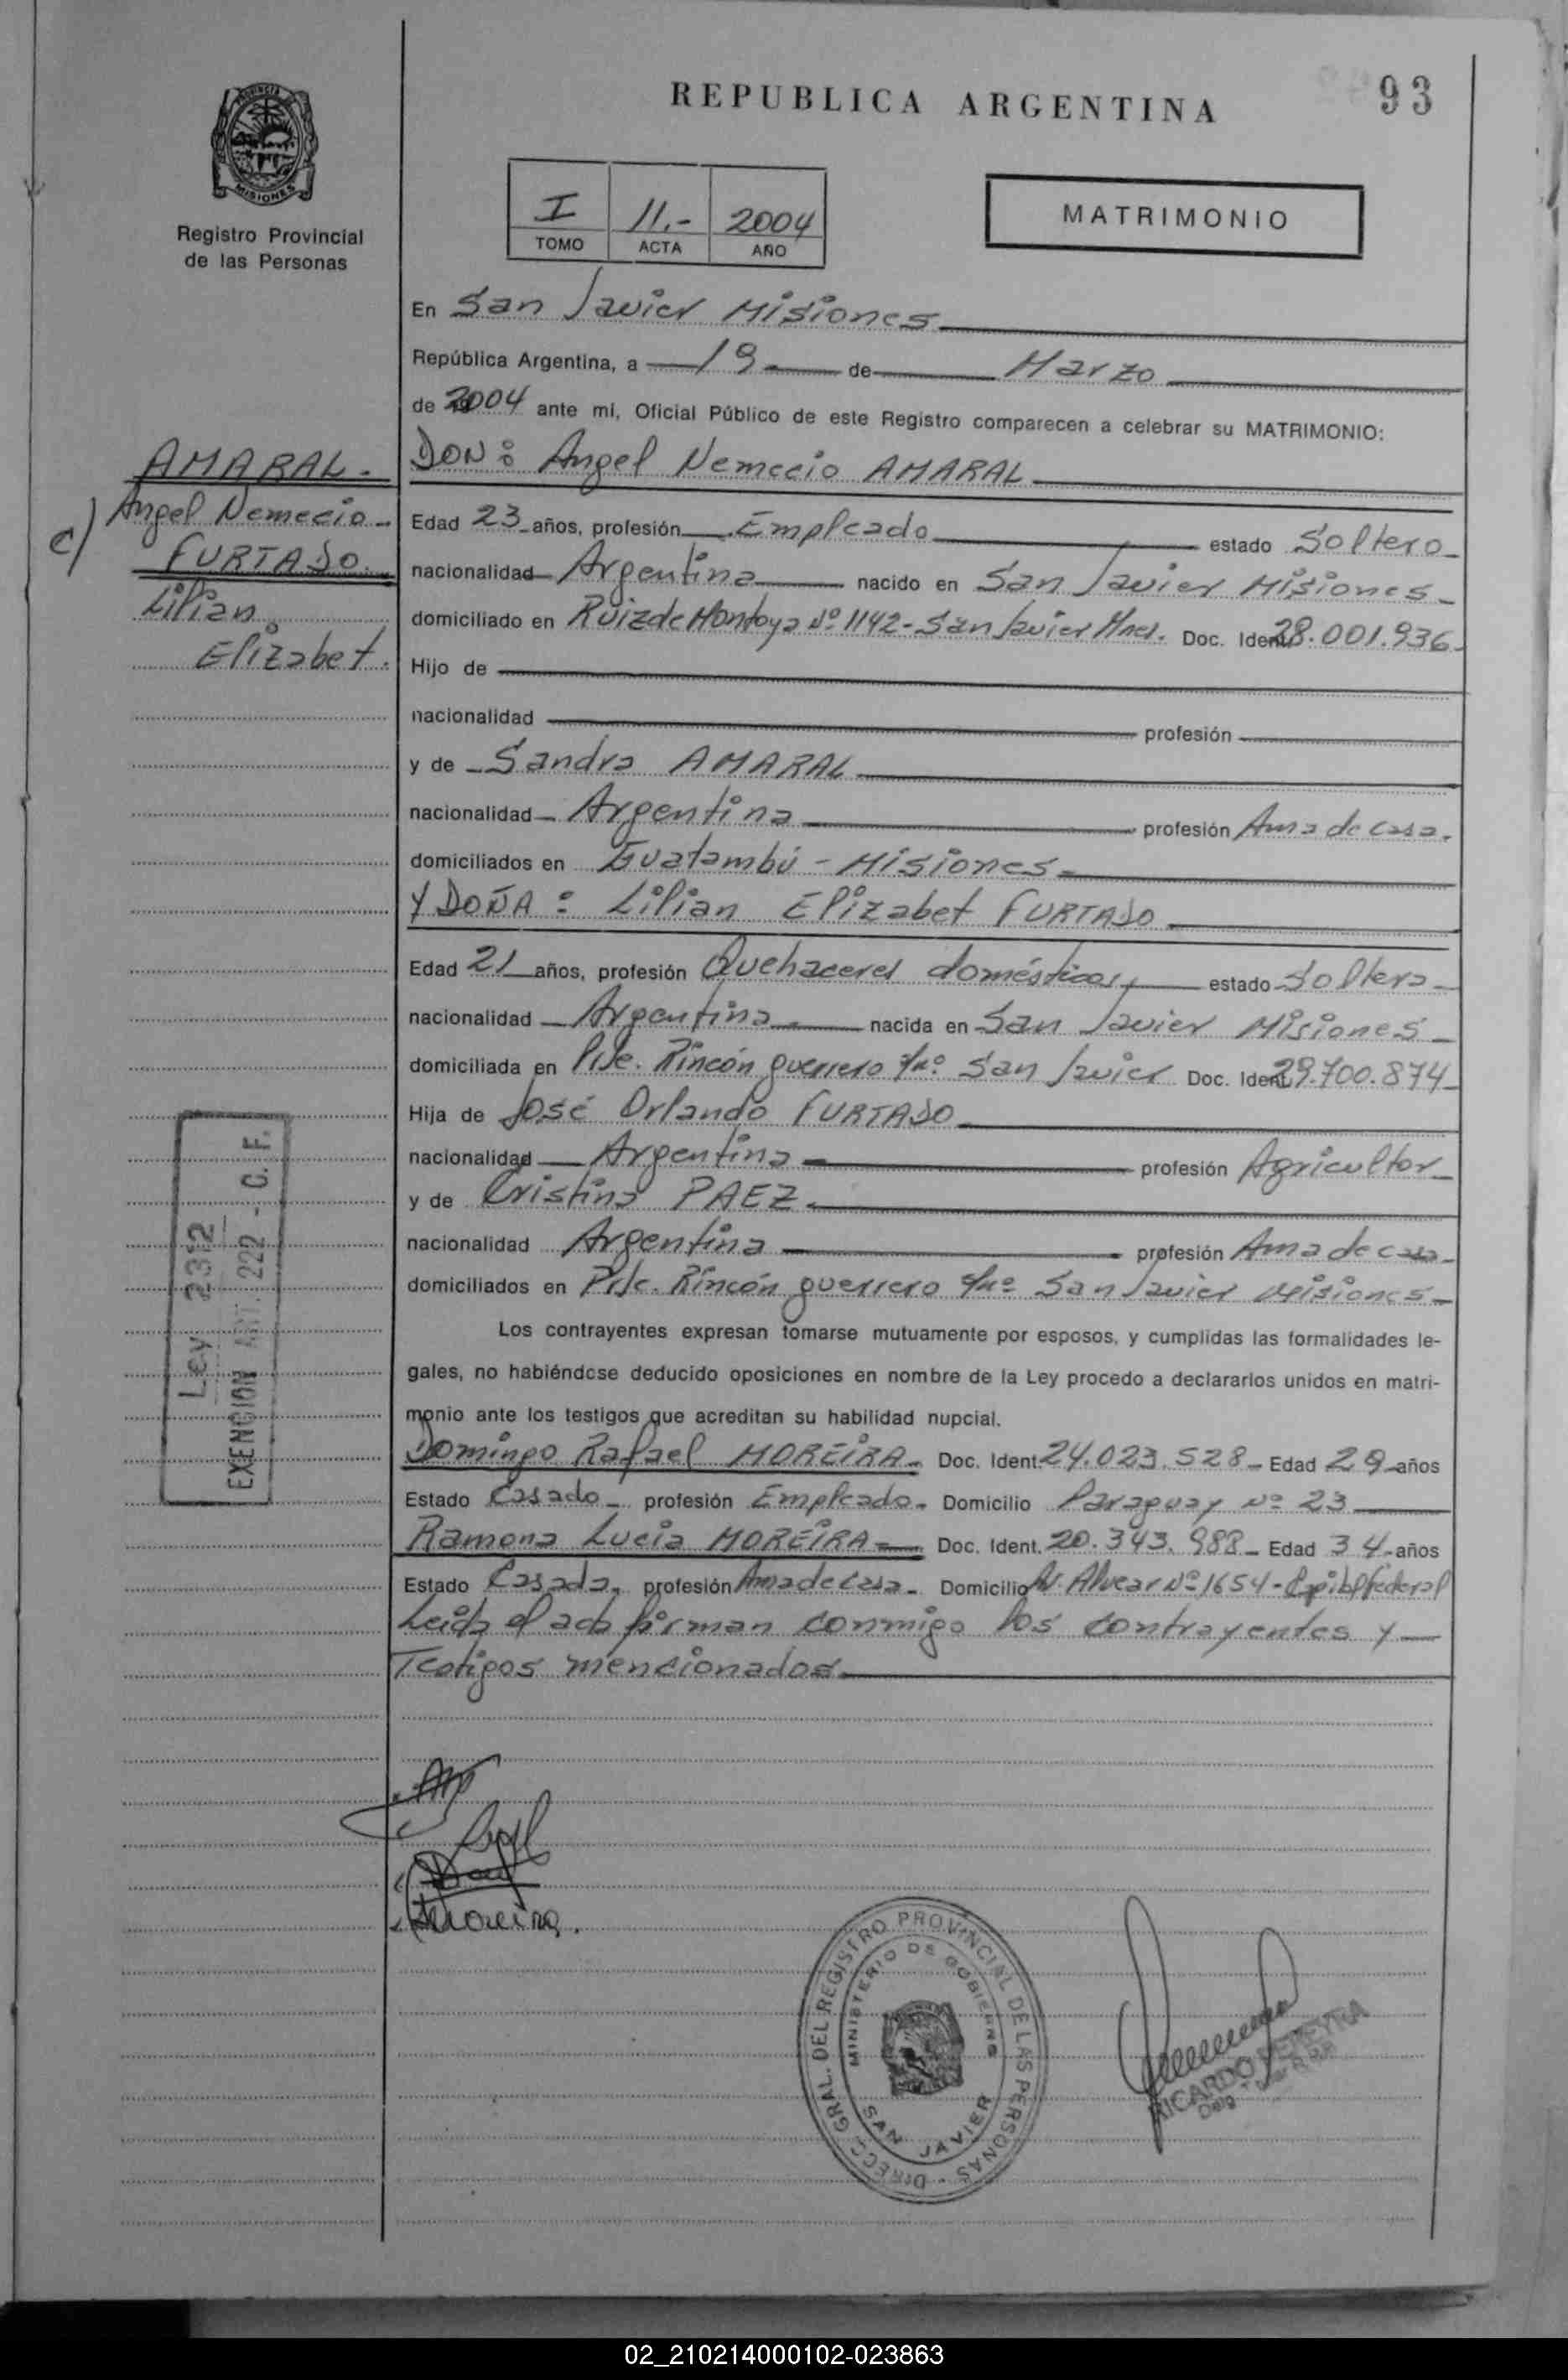 REPUBLICA ARGENTINA
93
PROVINCIA DE
MISIONES
Registro Provincial
de las Personas
I 11.- 2004
TOMO ACTA AÑO
MATRIMONIO
En San Javier Misiones
República Argentina, a 19 de Marzo
de 2004 ante mi, Oficial Público de este Registro comparecen a celebrar su MATRIMONIO:
AMARAL.-
Angel Nemecio-
c/ FURTADO.
Lilian
Elizabet.
DON: Angel Nemecio AMARAL
Edad 23 años, profesión Empleado estado Soltero
nacionalidad Argentina nacido en San Javier Misiones
domiciliado en Ruiz de Montoya Nº 1142-San Javier Mnes. Doc. Ident. 28.001.936
Hijo de
nacionalidad profesión
y de Sandra AMARAL
nacionalidad Argentina profesión Ama de casa.
domiciliados en Guatambú - Misiones
Y DOÑA: Lilian Elizabet FURTADO
Edad 21 años, profesión Quehaceres domésticos estado Soltera
nacionalidad Argentina nacida en San Javier Misiones
domiciliada en Pje. Rincón guerrero San Javier Doc. Ident. 29.700.874
Hija de José Orlando FURTADO
nacionalidad Argentina profesión Agricultor
y de Cristina PAEZ
nacionalidad Argentina profesión Ama de casa
domiciliados en Pje. Rincón guerrero San Javier Misiones
Los contrayentes expresan tomarse mutuamente por esposos, y cumplidas las formalidades le-
gales, no habiéndose deducido oposiciones en nombre de la Ley procedo a declararlos unidos en matri-
monio ante los testigos que acreditan su habilidad nupcial.
Domingo Rafael MOREIRA Doc. Ident. 24.023.528 Edad 29 años
Estado Casado profesión Empleado. Domicilio Paraguay Nº 23
Ramona Lucia MOREIRA Doc. Ident. 20.343.988 Edad 34 años
Estado Casada, profesión Ama de casa Domicilio Av. Alvear Nº 1654-Capital federal
Leida el acta firman conmigo los contrayentes y
Testigos mencionados
Ley 2312
EXENCION ART. 222 - C. F.
Moreira.
DIRECC. GRAL. DEL REGISTRO PROVINCIAL DE LAS PERSONAS
MINISTERIO DE GOBIERNO
SAN JAVIER
RICARDO PEREYRA
02_210214000102-023863